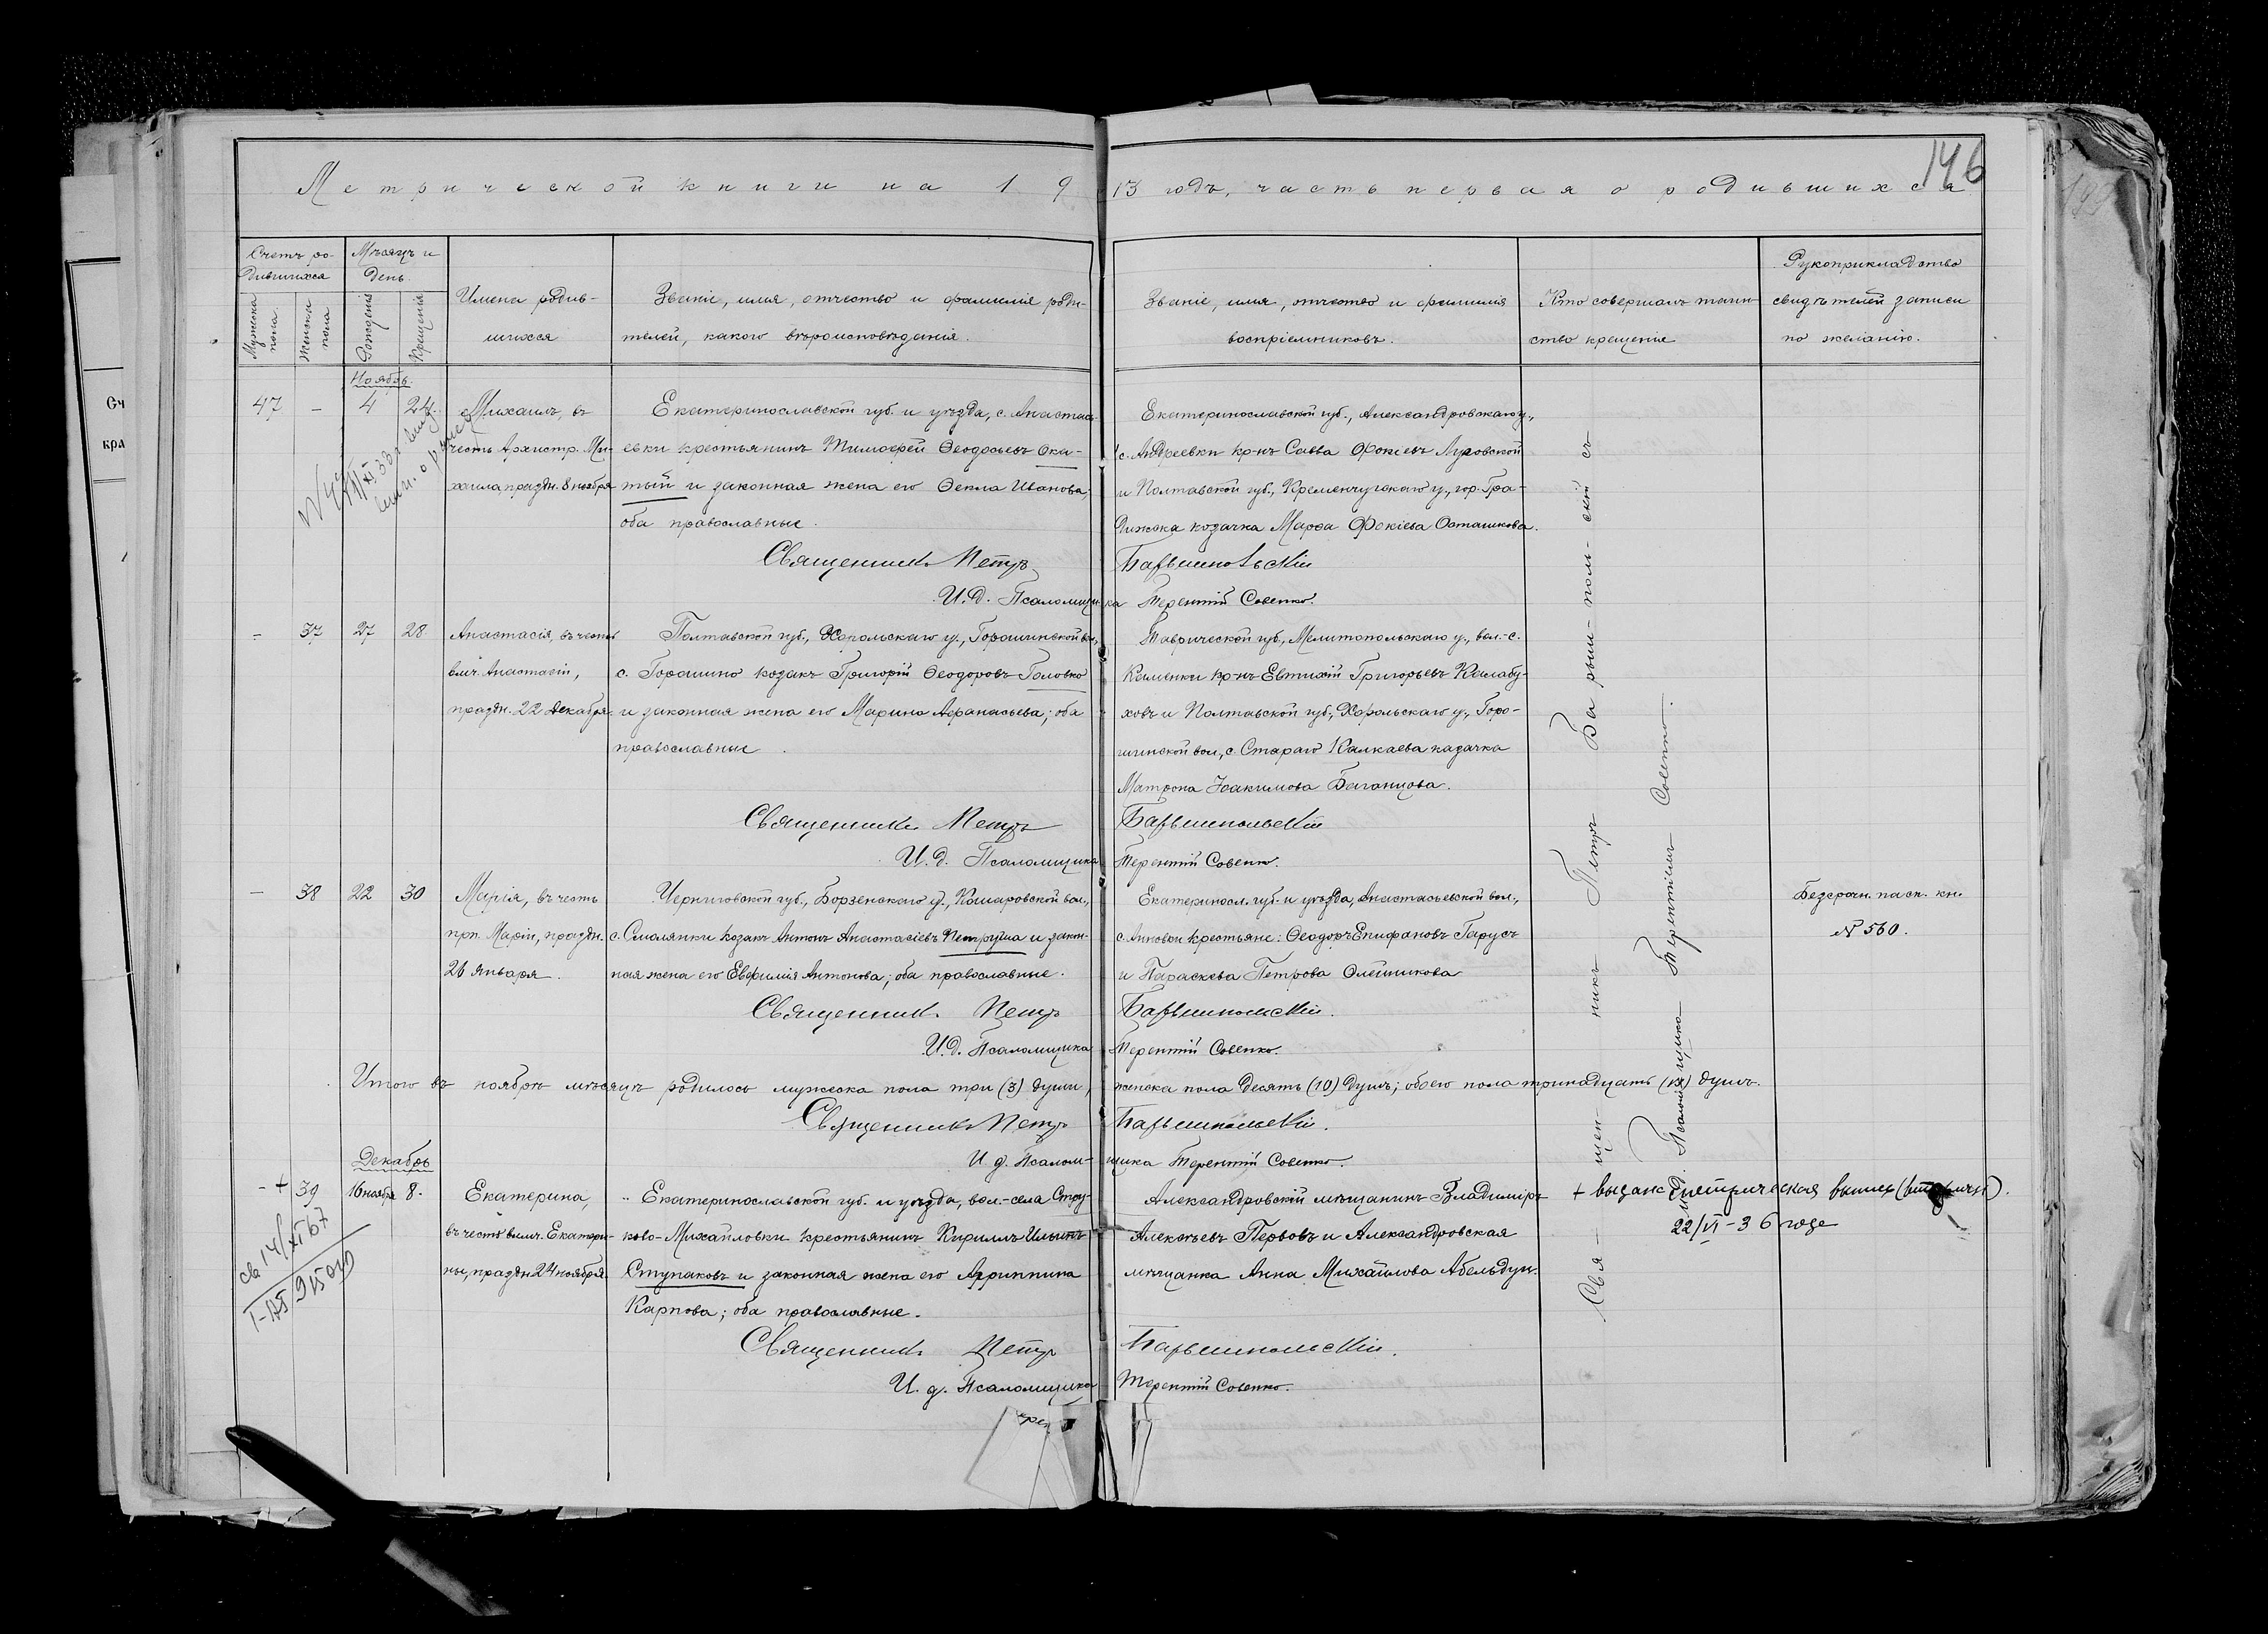 146
Метрической книги на 1913 годъ, часть первая о родившихся
Счетъ ро-
дившихся
Мужеска пола
Женска пола
Мѣсяцъ и
день
Рожденія
Крещенія
Имена родив-
шихся
Званіе, имя, отчество и фамилія роди-
телей, какого вѣроисповѣданія.
Званіе, имя, отчество и фамилія
воспріемниковъ.
Кто совершалъ таин-
ство крещенія
Рукоприкладство
свидѣтелей записи
по желанію.
Ноябрь.
47 – 4 24.
Михаилъ, въ
честь Архистр. Ми-
хаила, праздн. 8 ноября
Екатеринославской губ. и уѣзда, с. Анастась-
евки крестьянинъ Тимоѳей Ѳеодосьевъ Ока-
тый и законная жена его Ѳекла Иванова,
оба православные.
Екатеринославской губ., Александровскаго у.,
с. Андреевки кр-нъ Савва Фокіевъ Луговской
и Полтавской губ., Кременчугскаго у., гор. Гра-
дижска козачка Марѳа Фокіева Осташкова.
Священникъ Петръ Барышпольскій
И.д. Псаломщика Терентій Совенко.
– 37 27 28
Анастасія, въ честь
влмч. Анастасіи,
праздн. 22 Декабря.
Полтавской губ., Хорольскаго у., Горошинской вол.,
с. Горошино козакъ Григорій Ѳеодоровъ Головко
и законная жена его Марина Аѳанасьева; оба
православные.
Таврической губ., Мелитопольскаго у., вол.-с.
Каменки кр-нъ Евтихій Григорьевъ Калабу-
ховъ и Полтавской губ., Хорольскаго у., Горо-
шинской вол., с. Стараго Калкаева казачка
Матрона Іоакимова Баганцова.
Священникъ Петръ Барышпольскій
И.д. Псаломщика Терентій Совенко.
– 38 22 30
Марія, въ честь
прп. Маріи, праздн.
26 Января.
Черниговской губ., Борзенскаго у., Комаровской вол.,
с. Смолянки козакъ Антонъ Анастасіевъ Петруша и закон-
ная жена его Евфимія Антонова; оба православные.
Екатеринсл. губ. и уѣзда, Анастасьевской вол.,
с. Анновки крестьяне: Ѳеодоръ Епифановъ Гарусъ
и Параскева Петрова Олейникова
Безсрочн. пасп. кн.
№ 560.
Священникъ Петръ Барышпольскій.
И.д. Псаломщика Терентій Совенко.
Итого въ ноябрѣ мѣсяцѣ родилось мужеска пола три (3) души, женска пола десять (10) душъ; обоего пола тринадцать (13) душъ.
Священникъ Петръ Барышпольскій.
И д. Псаломщика Терентій Совенко.
Декабрь
– + 39 16 ноября 8.
Екатерина,
въ честь влмч. Екатери-
ны, праздн. 24 ноября.
Екатеринославской губ. и уѣзда, вол.-села Стру-
ково-Михайловки крестьянинъ Кириллъ Ильинъ
Ступаковъ и законная жена его Агриппина
Карпова; оба православные.
Александровскій мѣщанинъ Владиміръ
Алексѣевъ Первовъ и Александровская
мѣщанка Анна Михайлова Абельдун.
+ выдана метрическая выпись
22/VI-36 года
св 14/XI 67
Священникъ Петръ Барышпольскій.
И. д. Псаломщика Терентій Совенко.
Священникъ Петръ Барышпольскій съ
и.д. Псаломщика Терентіемъ Совенко.